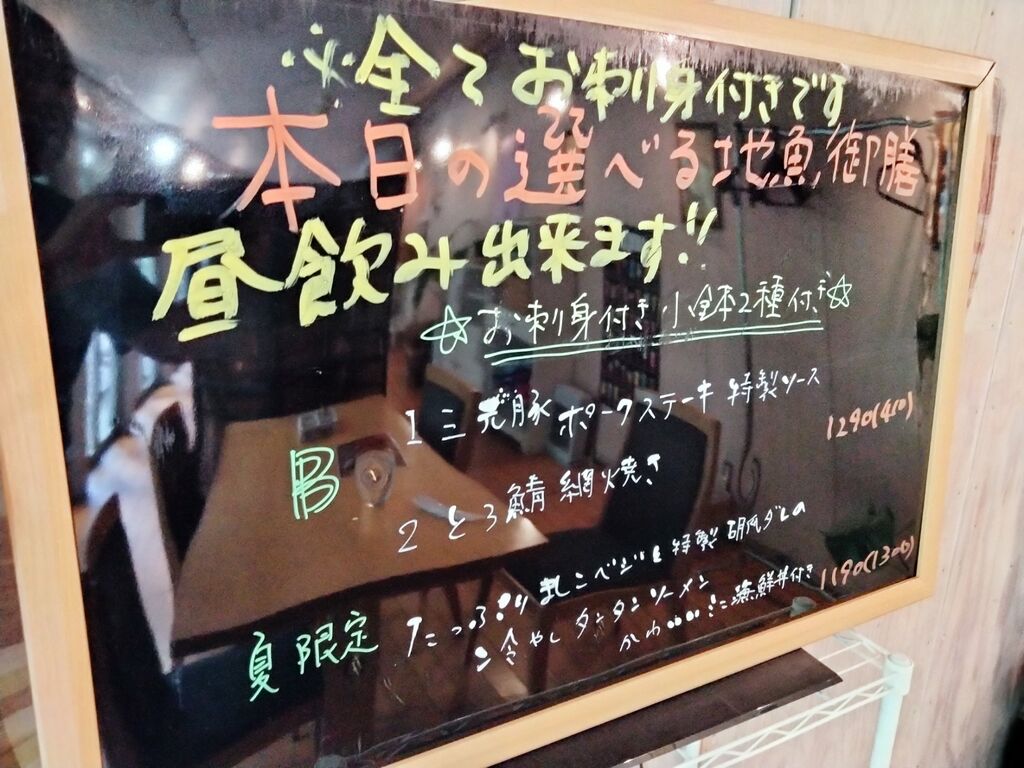 ※全てお刺身付きです
本日の選べる地魚御膳
昼飲み出来ます!!
☆お刺身付き小鉢2種付☆
B
1 三元豚 ポークステーキ 特製ソース
1290(1410)
2 とろ鯖 網焼き
夏限定 たっぷり きのこベジと特製 胡麻ダレの
冷やしタンタンソーメン
かわいいミニ海鮮丼付き
1190(1300)